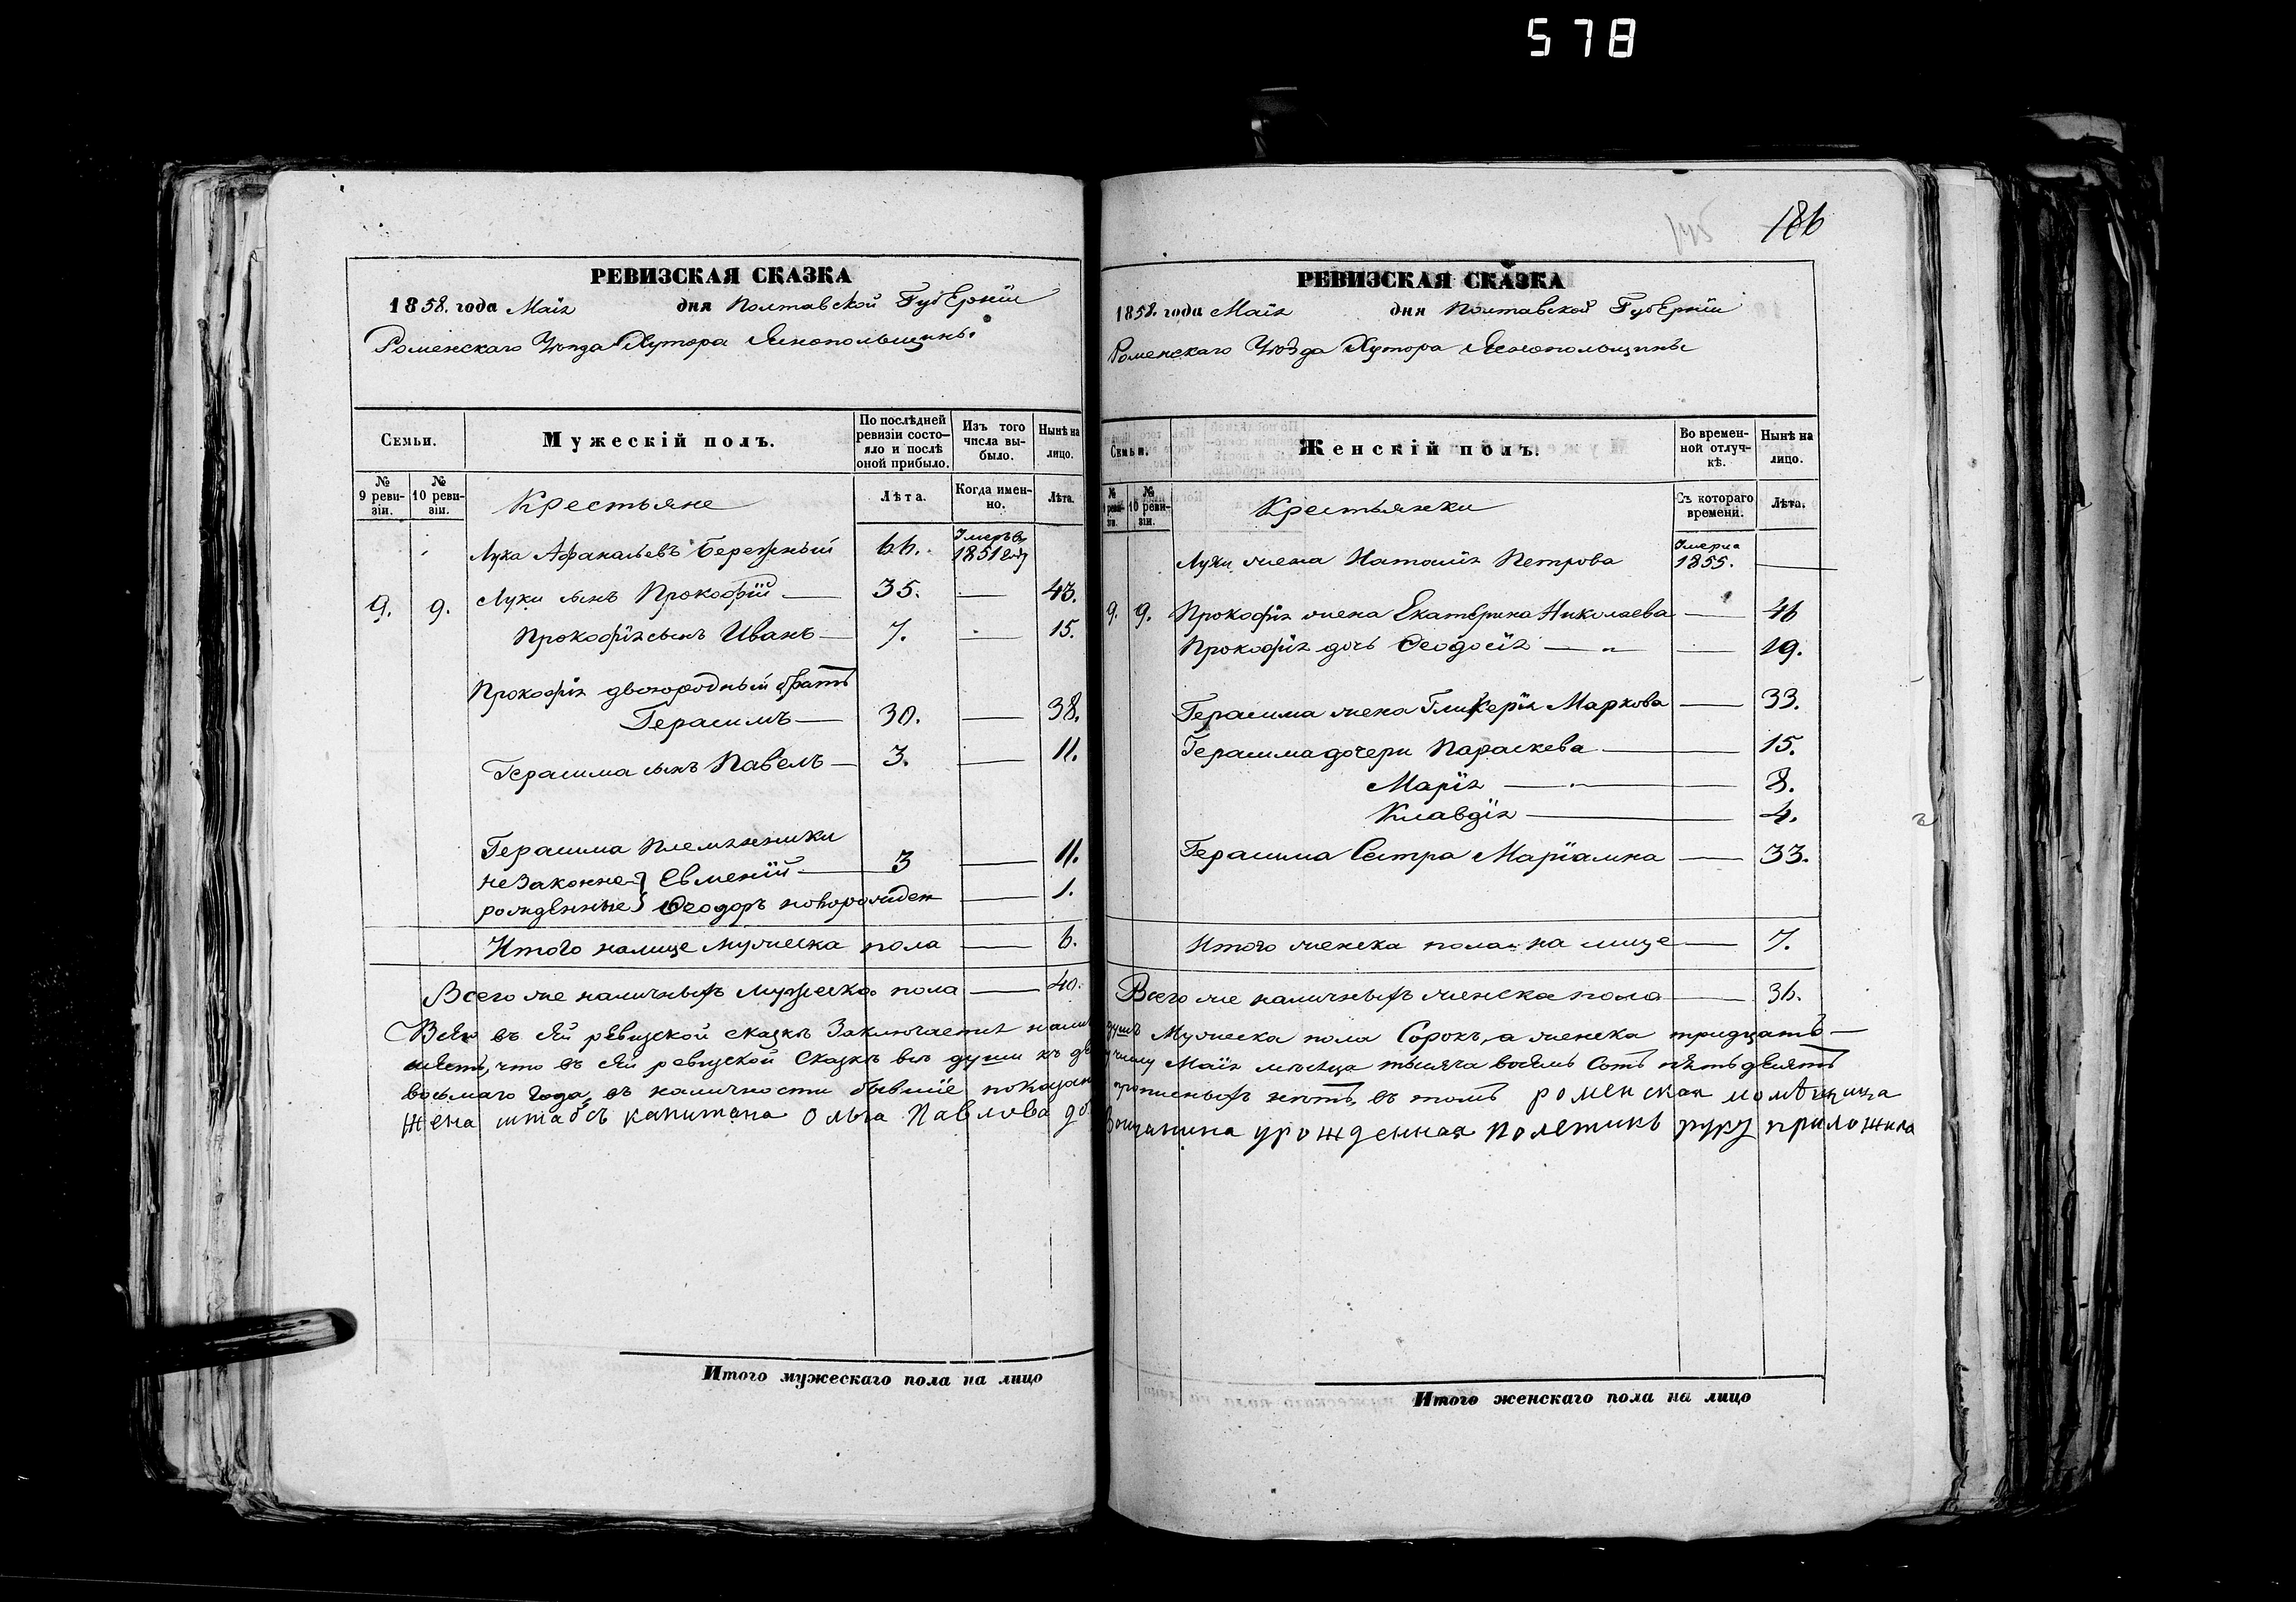 578
РЕВИЗСКАЯ СКАЗКА
1858. года Маія дня Полтавской Губерніи
Роменскаго Уѣзда Хутора Яснопольщины
Семьи.
Мужескій полъ.
По послѣдней ревизіи состо-
яло и послѣ
оной прибыло.
Изъ того
числа вы-
было.
Нынѣ на
лицо.
№
9 реви-
зіи.
№
10 реви-
зіи.
Крестьяне
Лѣта.
Когда имен-
но.
Лѣта.
Лука Афанасьевъ Бережный 66. Умеръ въ 1851 году
9. 9. Луки сынъ Прокофій — 35. — 43.
Прокофія сынъ Иванъ — 7. — 15.
Прокофія двоюродный братъ
Герасимъ — 30. — 38.
Герасима сынъ Павелъ — 3. — 11.
Герасима племянники
незаконно- } Евменій — 3 — 11.
рожденные } Ѳеодоръ новорожден — 1.
Итого налице мужеска пола — 6.
Всего же наличныхъ мужеска пола — 40.
Всего въ сей ревизской сказкѣ заключается
что въ сей ревизской сказкѣ всѣ души къ
восьмаго года, въ наличности бывшіе
жена штабсъ капитана Ольга Павлова
Итого мужескаго пола на лицо
186
145
РЕВИЗСКАЯ СКАЗКА
1858. года Маія дня Полтавской Губерніи
Роменскаго Уѣзда Хутора Яснопольщины
Семьи.
Женскій полъ.
Во времен-
ной отлуч-
кѣ.
Нынѣ на
лицо.
№
9 реви-
зіи.
№
10 реви-
зіи.
Крестьянки
Съ котораго
времени.
Лѣта.
Луки жена Наталія Петрова Умерла 1855. —
9. 9. Прокофія жена Екатерина Николаева — 46
Прокофія дочь Ѳеодосія — " — 19.
Герасима жена Гликерія Маркова — 33.
Герасима дочери Параскева — 15.
Марія — 8.
Клавдія — 4.
Герасима Сестра Маріамна — 33.
Итого женска пола на лице — 7.
Всего же наличныхъ женска пола — 36.
душъ Мужеска пола Сорокъ, а женска тридцать —
числу Маія мѣсяца тысяча восемь сотъ пятьдесятъ
прописныхъ нѣтъ, въ томъ роменская помѣщица
урожденная Полетикъ руку приложила
Итого женскаго пола на лицо